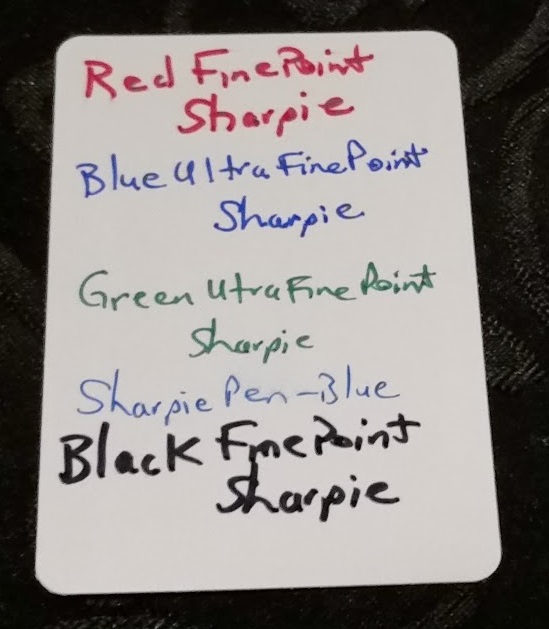 Red Fine Point
Sharpie
Blue Ultra Fine Point
Sharpie
Green Utra Fine Point
Sharpie
Sharpie Pen-Blue
Black Fine Point
Sharpie